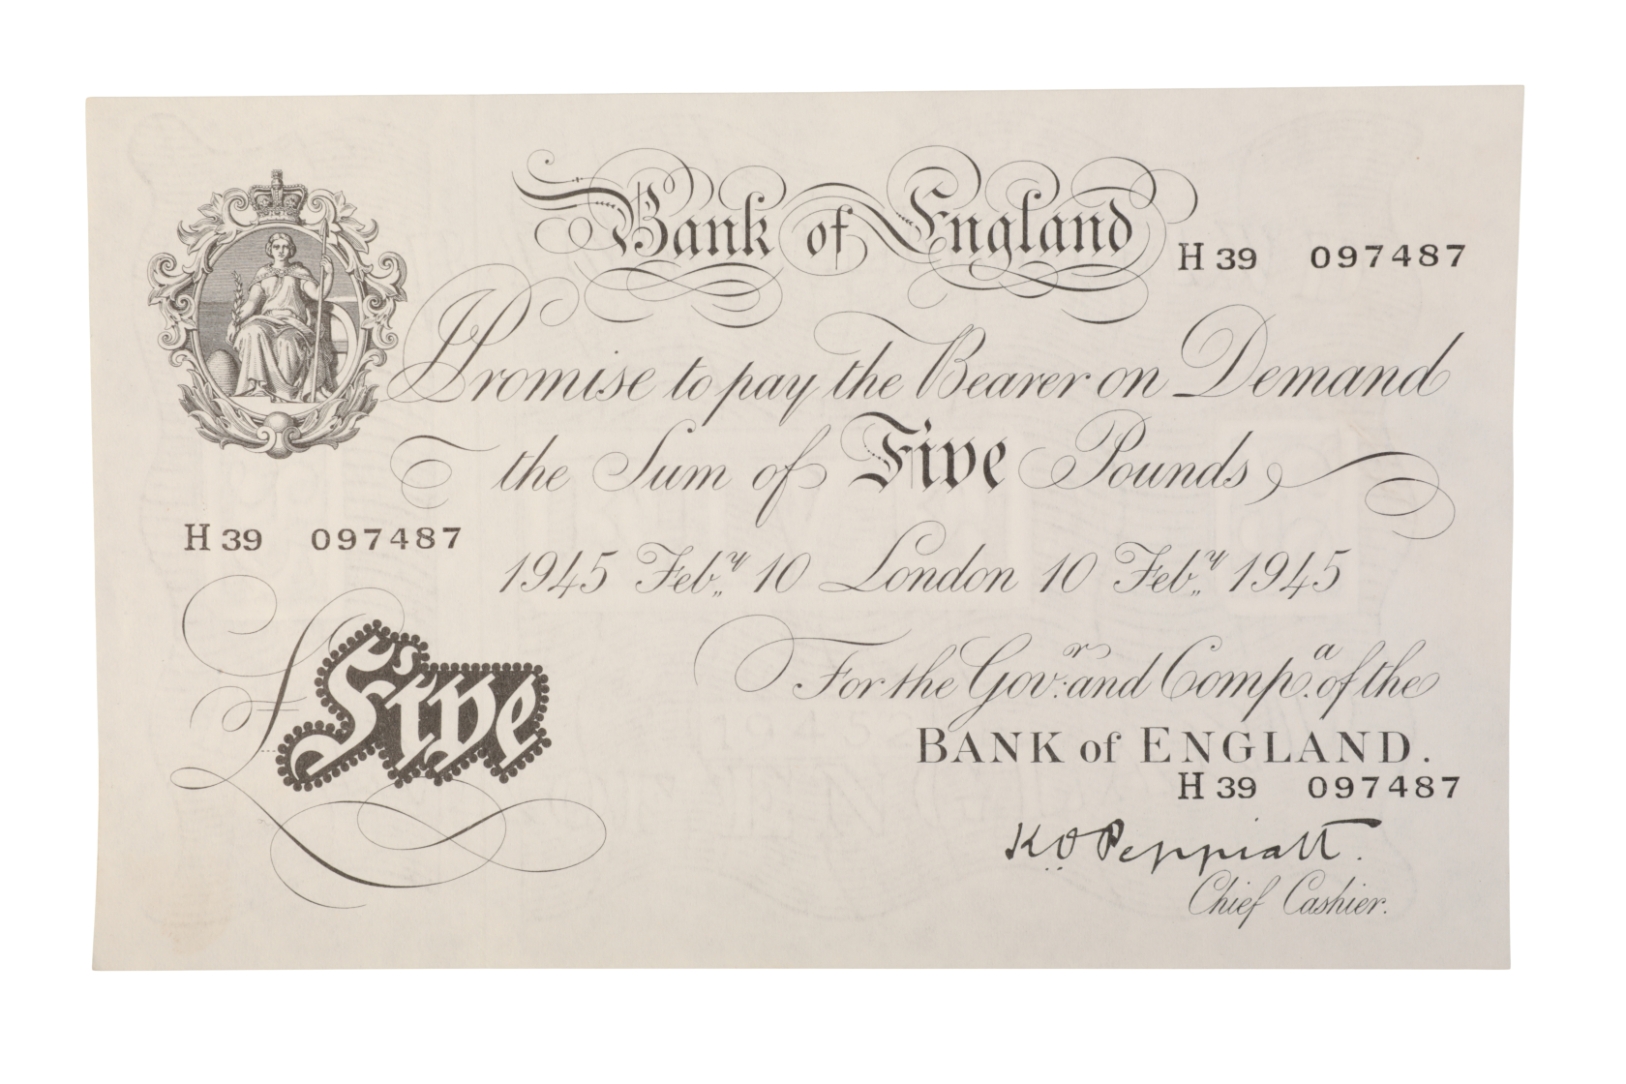 Bank of England
H 39 097487
I Promise to pay the Bearer on Demand
the Sum of Five Pounds
H 39 097487
1945 Feb.y 10 London 10 Feb.y 1945
£Five
For the Gov.r and Comp.a of the
BANK of ENGLAND.
H 39 097487
K O Peppiatt.
Chief Cashier.